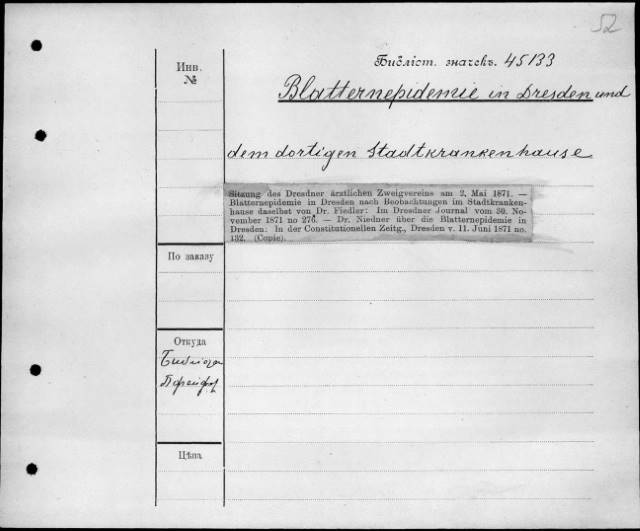 52
Инв.
№
Библіст. значекъ. 45133
Blatternepidemie in Dresden und
dem dortigen Stadtkrankenhause
Sitzung des Dresdner ärztlichen Zweigvereins am 2. Mai 1871. —
Blatternepidemie in Dresden nach Beobachtungen im Stadtkranken-
hause daselbst von Dr. Fiedler: Im Dresdner Journal vom 30. No-
vember 1871 no 276. — Dr. Niedner über die Blatternepidemie in
Dresden: In der Constitutionellen Zeitg., Dresden v. 11. Juni 1871 no.
132. (Copie).
По заказу
Откуда
Цѣна